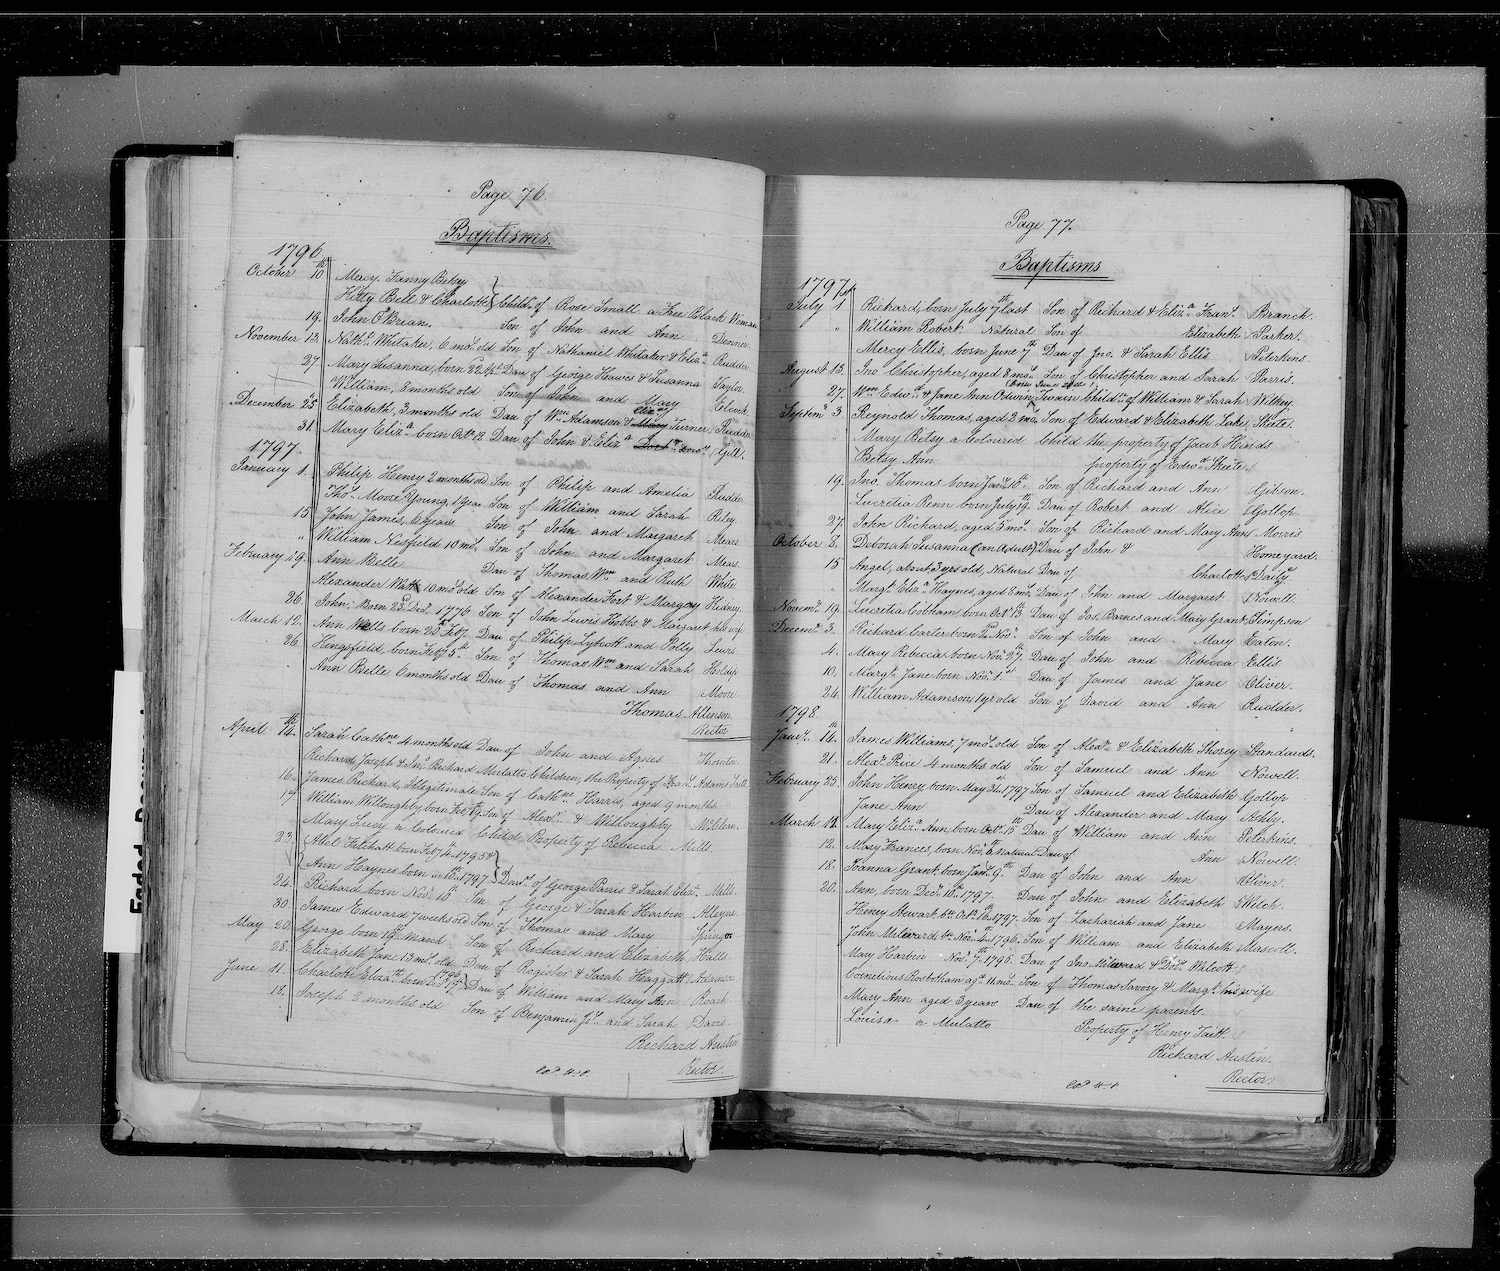 Page 76.
Baptisms.
1796
October 10th Mary, Fanny Betsy
Kitty Bell & Charlotte } Childn. of Rose Small a Free Black Woman
19. John O'Brian. Son of John and Ann Denner
November 13. Nathl. Whitaker, 6 mos. old Son of Nathaniel Whitaker & Eliza. Rudder
27 Mary Susanna, born 22 Dau of George Hawes & Susanna Taylor
William, 3 months old Son of John and Mary
December 25 Elizabeth, 3 months old Dau of Wm. Adamson & Mary Turner Rudder
31. Mary Eliza. born Octr. 12 Dau of John & Eliza Gill.
1797.
January 1. Philip Henry 2 months old Son of Philip and Amelia Rudder
Thos. Moore Young, 1 year Son of William and Sarah Riley
15 John James, 6 years Son of John and Margaret Mears
" William Nesfield 10 mos. Son of John and Margaret Mears
February 19. Ann Belle Dau of Thomas Wm and Ruth White
Alexander Watt 10 mos. old Son of Alexander Fort & Margery Kidney
26. John, Born 23d Decr. 1776 Son of John Lewis Hobbs & Margaret his wife
March 12. Ann Wells born 25 Feby. Dau of Philip Lybott and Polly Lewis
26. Hingsfield, born Feby 5th Son of Thomas Wm and Sarah
Ann Belle 6 months old Dau of Thomas and Ann Moore
Thomas Atkinson
Rector
April 14th Sarah Cathne. 4 months old Dau of John and Agnes Thornton
Richard, Joseph & Jno. Richard Mulatto Children, the Property of Adams
16 James Richard, Illegitimate Son of Cathne Harris, aged 9 months
17 William Willoughby born Son of Alexr. & Willoughby McClean
Mary Lucy a Coloured Child Property of Rebecca Mills
23. Abel born Feby 4th 1795 &
Ann Haynes born 1797 } Daurs. of George Parris & Sarah Mills
24. Richard born Novr. 10th Son of George & Sarah Harbin Alleyne
30. James Edward 7 weeks old Son of Thomas and Mary Springer
May 20. George born March Son of Richard and Elizabeth Halls
28. Elizabeth Jane 13 mos. old Dau of Register & Sarah Heaggatt Adamson
June 11. Charlotte Elizath. born Dau of William and Mary Ann Roach
18. Joseph 2 months old Son of Benjamin Jr. and Sarah David
Richard Austin
Rector.
Page 77.
Baptisms
1797
July 1. Richard, born July 7th last Son of Richard & Eliza Branch.
" William Robert Natural Son of Elizabeth Parker.
Mercy Ellis, born June 7th Dau of Jno. & Sarah Ellis Peterkins
August 13. Jno Christopher, aged 8 mos. Son of Christopher and Sarah Parris.
27. Wm. Edwd. & Jane Ann Childn. of William & Sarah Wiltsey.
Septemr. 3 Reynold Thomas, aged 3 mos. Son of Edward & Elizabeth Lake Skeete.
Mary Betsy a Coloured Child the property of Jacob Hinds
Betsy Ann property of Edwd. Skeete
19. Jno. Thomas born Jany. 10th Son of Richard and Ann Gibson.
Lucretia Renn born July 19. Dau of Robert and Alice Gollop
27. John Richard, aged 5 mos. Son of Richard and Mary Ann Morris
October 8. Deborah Susanna (an Adult) Dau of John & Honeyard.
15 Angel, about 3 yrs old, Natural Dau of Charlotte Daily
Margt. Eliza Haynes, aged 8 mos. Dau of John and Margaret Nowell.
Novemr. 19. Lucretia Cobham born Octr. 13 Dau of Jas. Barnes and Mary Grant Simpson
Decemr. 3. Richard Carter born Novr. Son of John and Mary Eaton.
4. Mary Rebecca born Novr. 27. Dau of John and Rebecca Ellis
10. Margt. Jane born Novr. 1st Dau of James and Jane Oliver.
24. William Adamson, 1 yr old Son of David and Ann Rudder.
1798
Jany. 14th James Williams, 7 mos. old Son of Alexr. & Elizabeth Shorey Standards.
21. Alexr. Price 4 months old Son of Samuel and Ann Nowell.
February 25. John Henry born May 31. 1797 Son of Samuel and Elizabeth Gollop
Jane Ann Dau of Alexander and Mary Ashby.
March 12. Mary Eliza Ann born Octr. 15th Dau of William and Ann Peterkins.
12. Mary Frances, born Novr. 6th natural Dau of Ann Nowell.
18. Joanna Grant born Jany. 9th Dau of John and Ann Oliver.
20. Ann, born Decr. 10th 1797 Dau of John and Elizabeth Welch.
Henry Stewart bn. Octr. 16. 1797. Son of Zachariah and Jane Mayers.
John Milward bn. Novr. 4th 1796. Son of William and Elizabeth Mascoll.
Mary Harbin Novr. 7th 1795 Dau of Jno Milward & Walcott
Cornelious Rosbotham agd. 11 mos. Son of Thomas Savory & Margt. his wife
Mary Ann aged 3 years Dau of the same parents.
Louisa a Mulatto Property of Henry Taitt.
Richard Austin.
Rector.